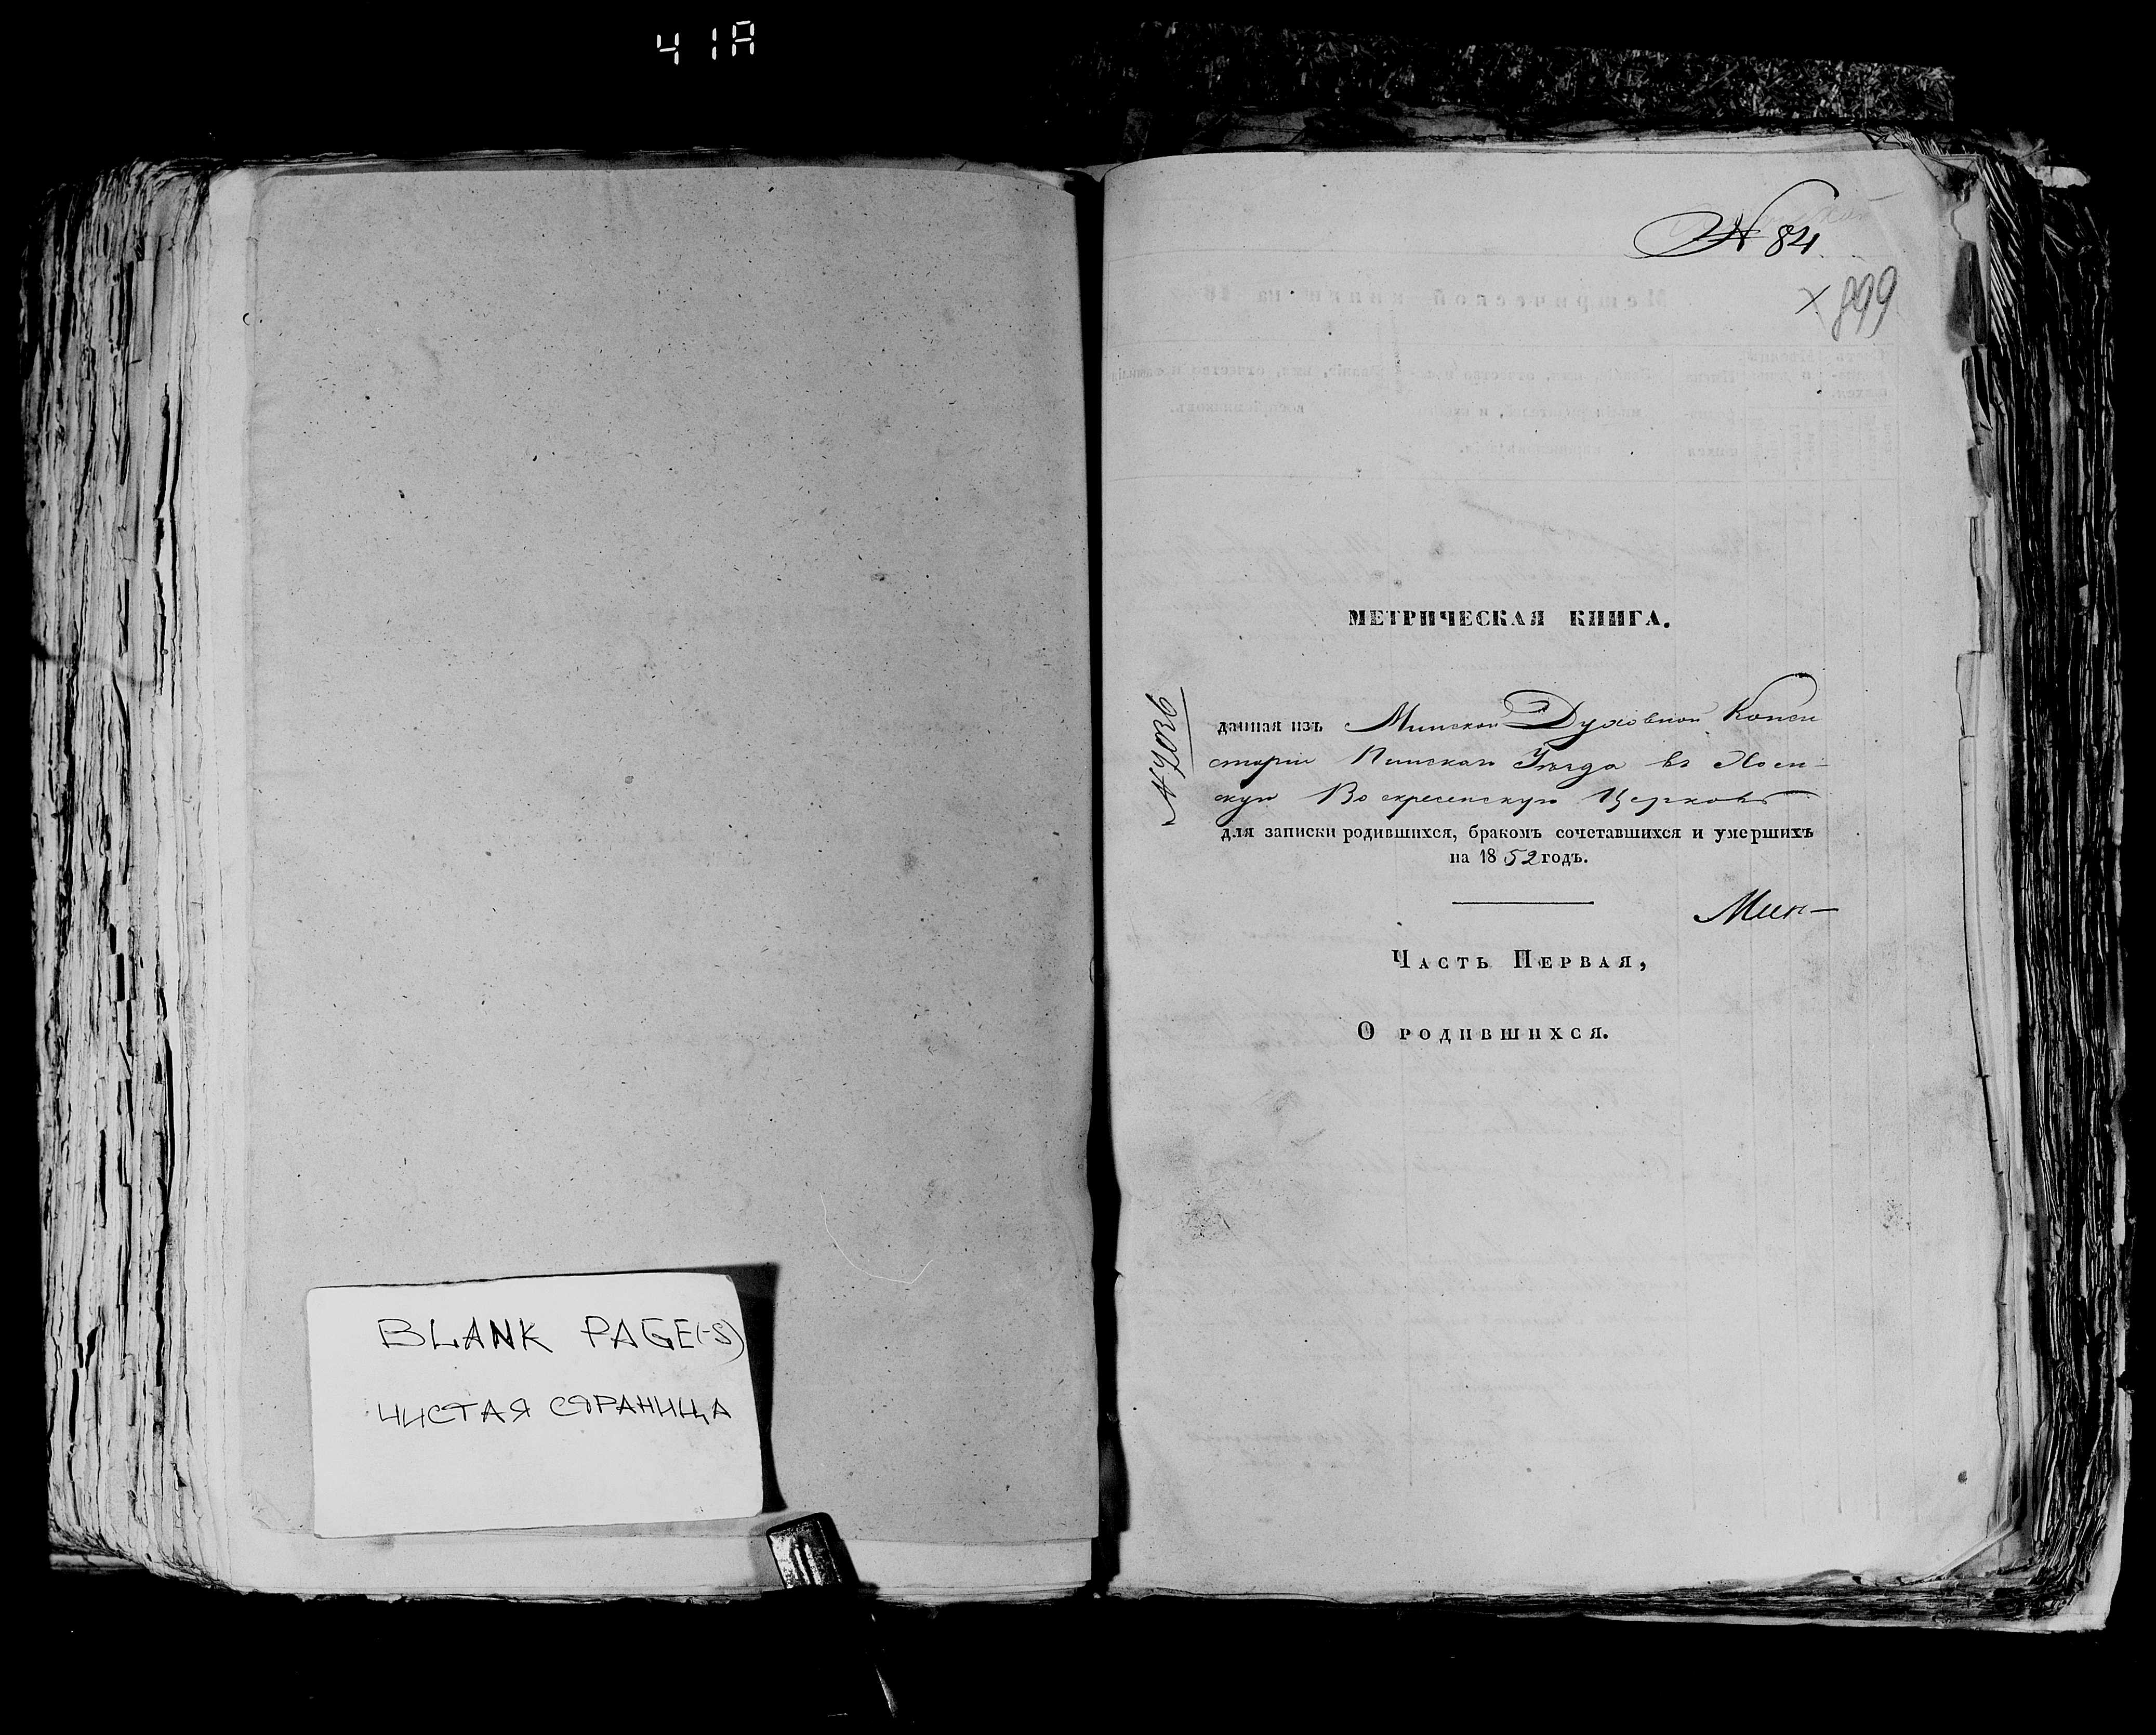 41A
№ 84
× 899
МЕТРИЧЕСКАЯ КНИГА.
№ 7036
данная изъ Минской Духовной Конси
сторіи Пинскаго Уѣзда въ
скую Воскресенскую Церковь
для записки родившихся, бракомъ сочетавшихся и умершихъ
на 1852 годъ.
Мин—
Часть Первая,
О родившихся.
BLANK PAGE(-S)
ЧИСТАЯ СТРАНИЦА